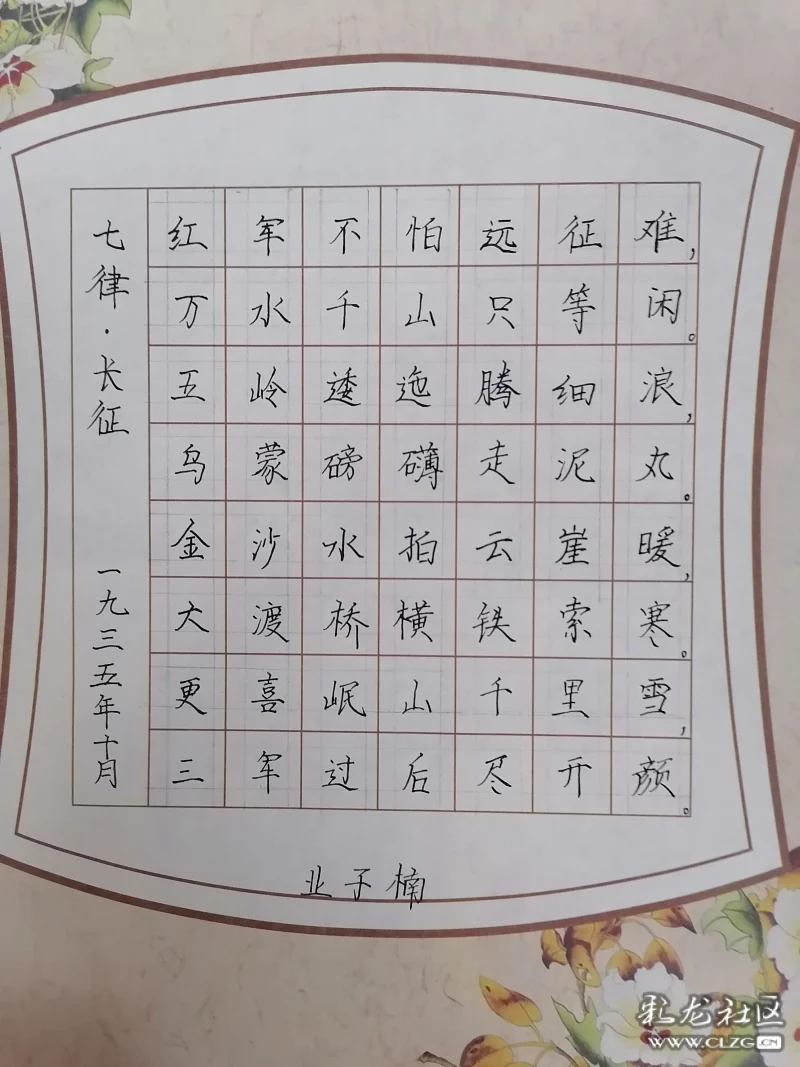 七律·长征
一九三五年十月
红军不怕远征难,
万水千山只等闲。
五岭逶迤腾细浪,
乌蒙磅礴走泥丸。
金沙水拍云崖暖,
大渡桥横铁索寒。
更喜岷山千里雪,
三军过后尽开颜。
业子楠
彩龙社区
WWW.CLZG.CN